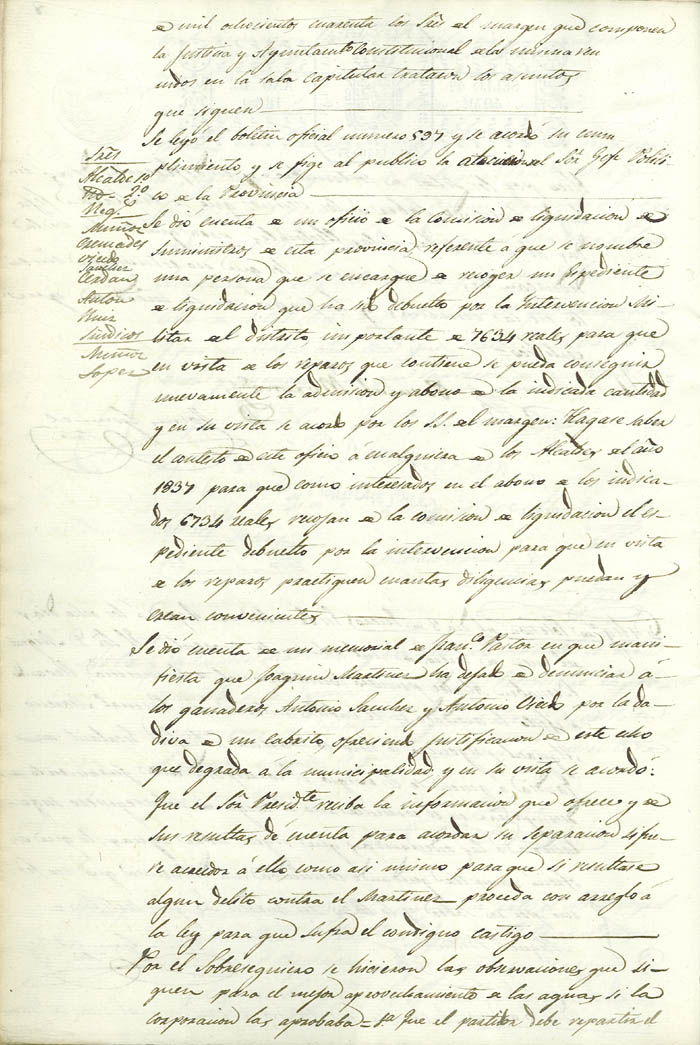 de mil ochocientos cuarenta los Sres del margen que componen
la Justicia y Ayuntamto Constitucional de la misma reu
nidos en la sala Capitular trataron los asuntos
que siguen
Se leyó el boletin oficial numero 537 y se acordó su cum
plimiento y se fige al publico la alocucion del Sor Gefe Politi-
co de la Provincia
Sres
Alcalde 1o
2o
Reg.
Muñoz
Cremades
Oviedo
Sanchez
Cerdan
Anton
Ruiz
Sindicos
Muñoz
Lopez
Se dió cuenta de un oficio de la comision de liquidacion de
suministros de esta provincia referente a que se nombre
una persona que se encargue de recoger un Espediente
de liquidacion que ha sido debuelto por la Intervencion Mi-
litar del distrito importante de 7634 reales para que
en vista de los reparos que contiene se pueda conseguir
nuevamente la admision y abono de la indicada cantidad
y en su vista se acordo por los SS. del margen: Hagase saber
el contesto de este oficio á cualquiera de los Alcaldes del año
1837 para que como interesados en el abono de los indica-
dos 6734 reales recojan de la comision de liquidacion el es-
pediente debuelto por la intervencion para que en vista
de los reparos practiquen cuantas diligencias puedan y
crean convenientes
Se dió cuenta de un memorial de Franco Pastor en que mani-
fiesta que Joaquin Martinez ha dejado de denunciar á
los ganaderos Antonio Sanchez y Antonio Oviedo por la da-
diva de un cabrito, ofreciendo justificacion de este echo
que degrada á la municipalidad y en su vista se acordó:
Que el Sor Presidte reciba la informacion que ofrece y de
sus resultas dé cuenta para acordar su separacion si fue-
se acreedor á ello como asi mismo para que si resultase
algun delito contra el Martinez proceda con arreglo á
la ley para que sufra el condigno castigo
Por el Sobresequiero se hicieron las observaciones que si-
guen para el mejor aprovechamiento de las aguas si la
corporacion las aprobaba = 1a Que el partidor debe repartir el